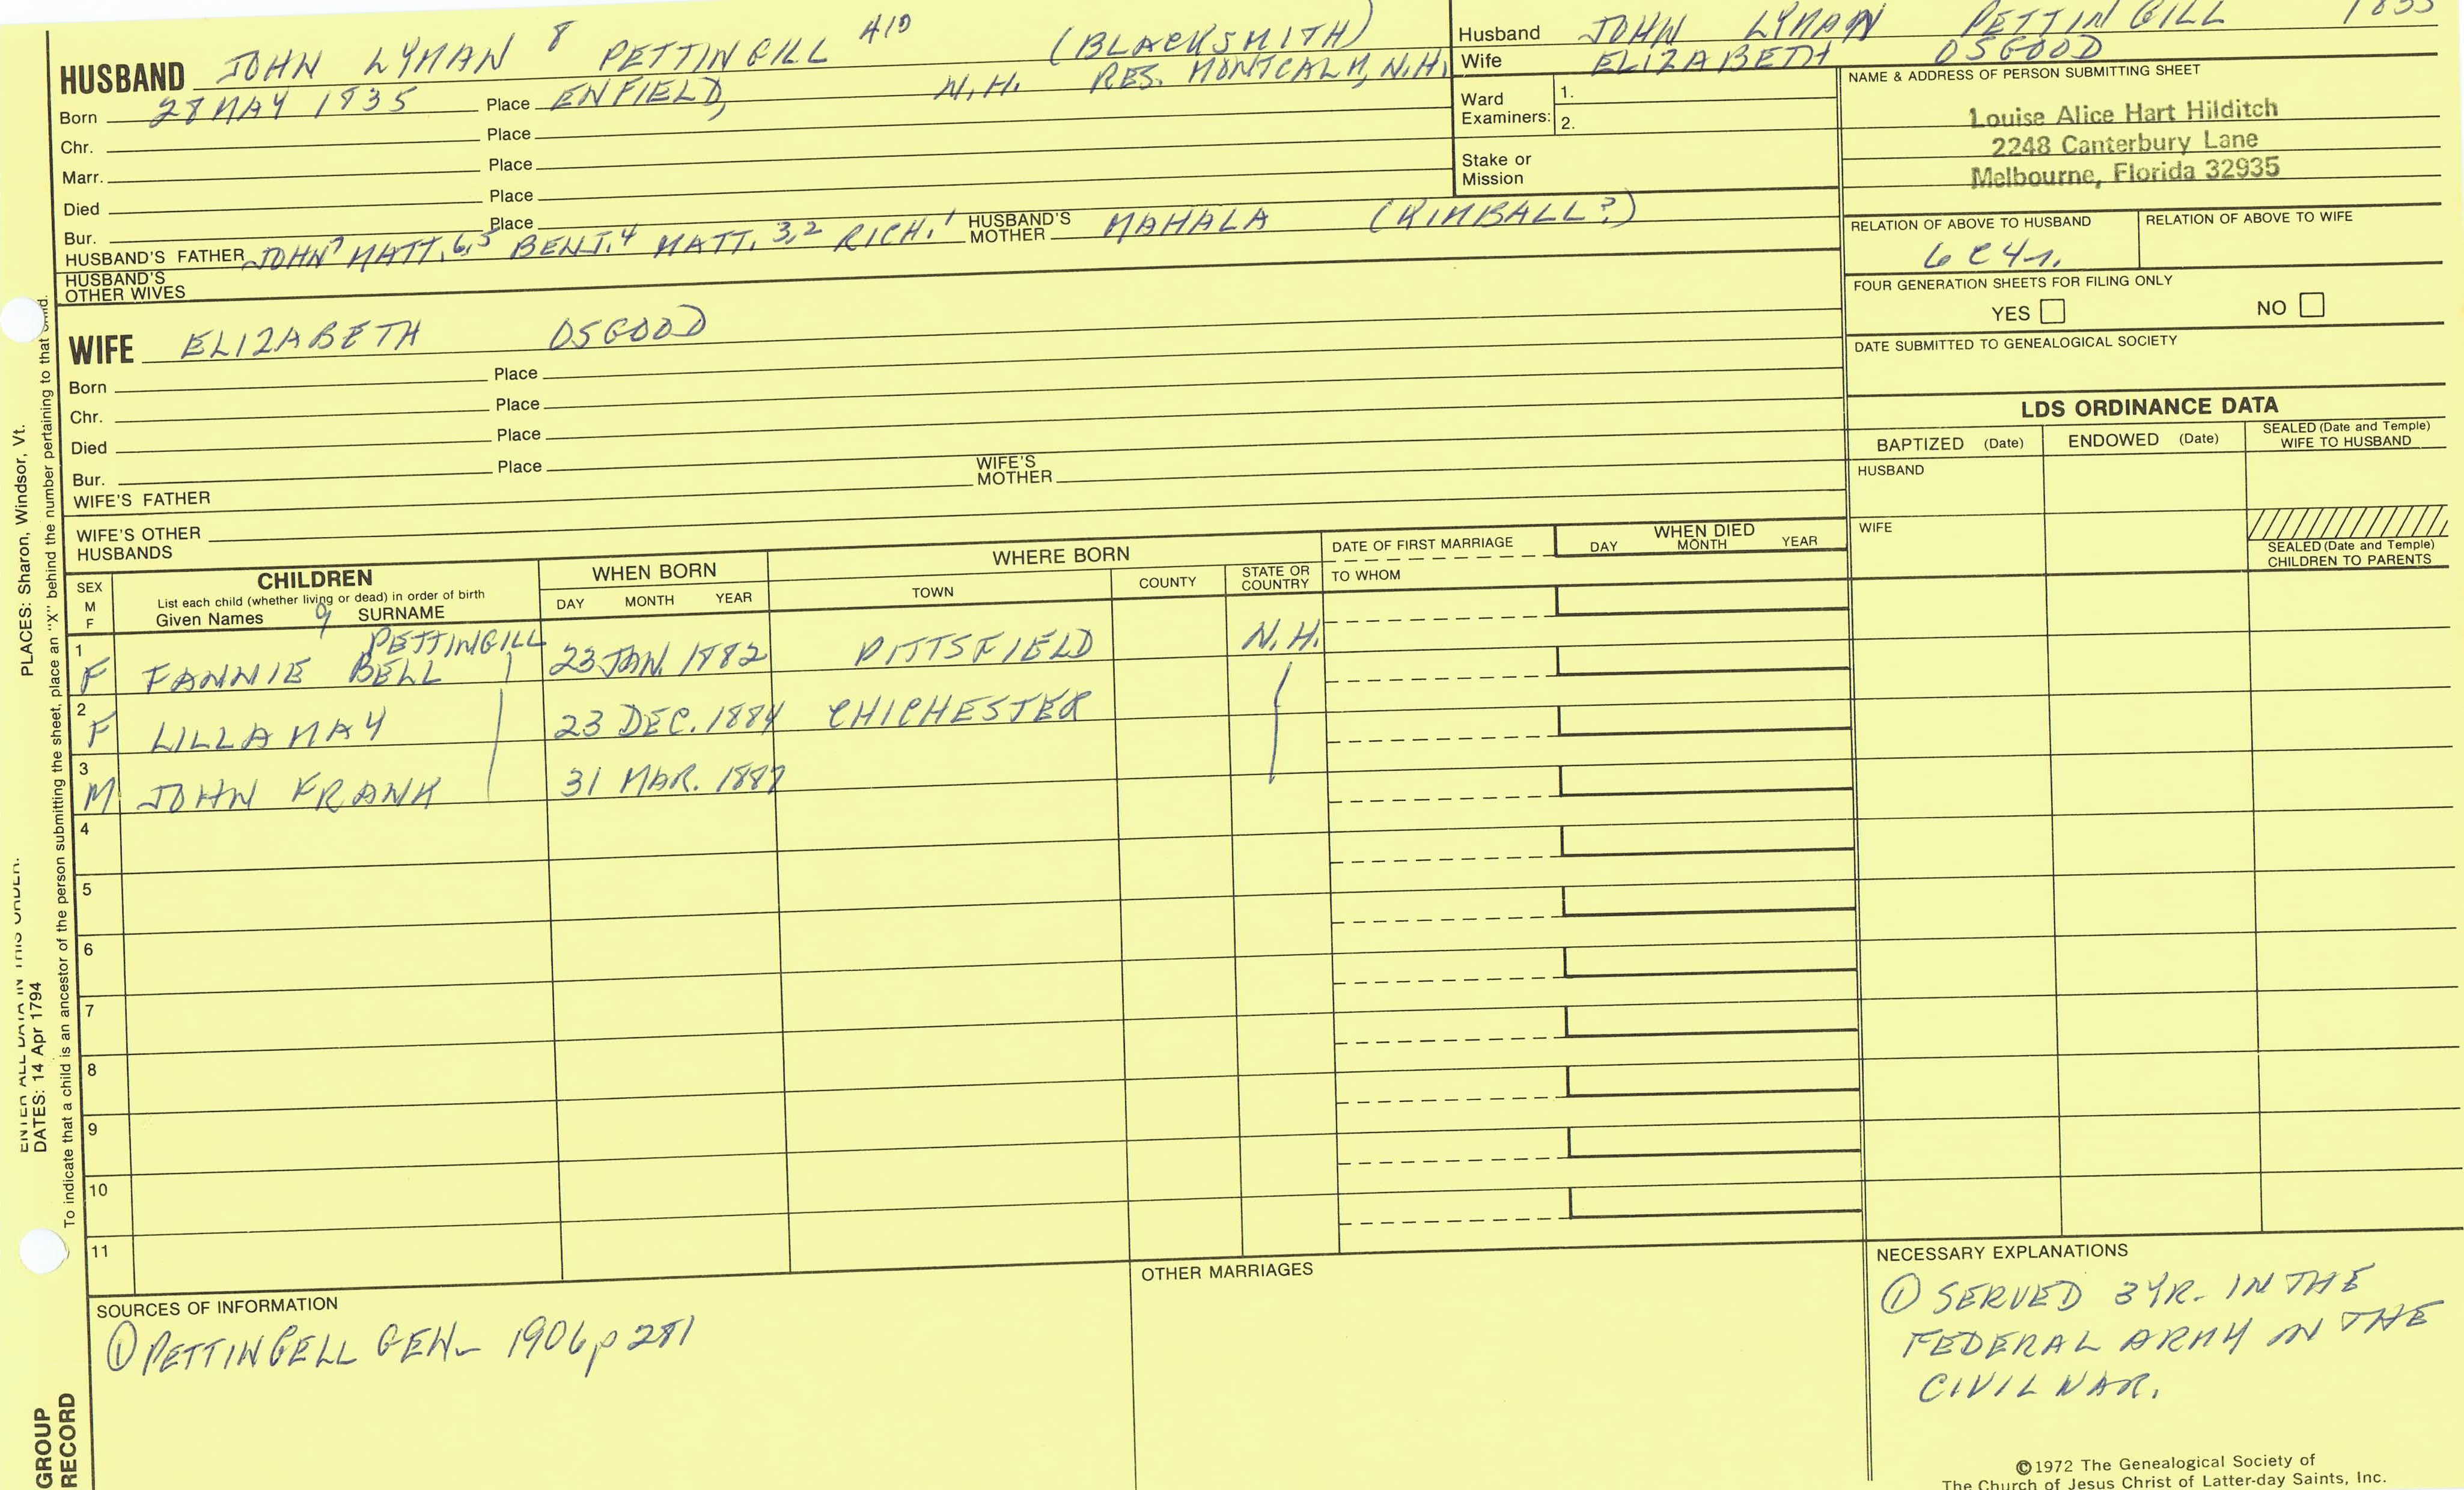 HUSBAND JOHN LYMAN 8 PETTINGILL 410 (BLACKSMITH)
Born 28 MAY 1835 Place ENFIELD, N.H. RES. MONTCALM, N.H.
Chr. Place
Marr. Place
Died Place
Bur. Place
HUSBAND'S FATHER JOHN 7 MATT. 6,5 BENJ. 4 MATT. 3,2 RICH. 1 HUSBAND'S MOTHER MAHALA (KIMBALL?)
HUSBAND'S OTHER WIVES
WIFE ELIZABETH OSGOOD
Born Place
Chr. Place
Died Place
Bur. Place
WIFE'S FATHER WIFE'S MOTHER
WIFE'S OTHER HUSBANDS
Husband JOHN LYMAN PETTINGILL 1835
Wife ELIZABETH OSGOOD
Ward Examiners: 1.
2.
Stake or Mission
NAME & ADDRESS OF PERSON SUBMITTING SHEET
Louise Alice Hart Hilditch
2248 Canterbury Lane
Melbourne, Florida 32935
RELATION OF ABOVE TO HUSBAND RELATION OF ABOVE TO WIFE
6C4r.
FOUR GENERATION SHEETS FOR FILING ONLY
YES NO
DATE SUBMITTED TO GENEALOGICAL SOCIETY
LDS ORDINANCE DATA
BAPTIZED (Date) ENDOWED (Date) SEALED (Date and Temple) WIFE TO HUSBAND
HUSBAND
WIFE
SEALED (Date and Temple) CHILDREN TO PARENTS
SEX M F
CHILDREN
List each child (whether living or dead) in order of birth
Given Names 9 SURNAME
WHEN BORN
DAY MONTH YEAR
WHERE BORN
TOWN COUNTY STATE OR COUNTRY
DATE OF FIRST MARRIAGE
TO WHOM
WHEN DIED
DAY MONTH YEAR
1 F FANNIE BELL PETTINGILL 23 JAN. 1882 PITTSFIELD N.H.
2 F LILLA MAY 23 DEC. 1884 CHICHESTER
3 M JOHN FRANK 31 MAR. 1887
4
5
6
7
8
9
10
11
SOURCES OF INFORMATION
① PETTINGELL GEN. 1906 p 281
OTHER MARRIAGES
NECESSARY EXPLANATIONS
① SERVED 3 YR. IN THE
FEDERAL ARMY IN THE
CIVIL WAR.
©1972 The Genealogical Society of
The Church of Jesus Christ of Latter-day Saints, Inc.
ENTER ALL DATA IN THIS ORDER:
DATES: 14 Apr 1794
PLACES: Sharon, Windsor, Vt.
To indicate that a child is an ancestor of the person submitting the sheet, place an "X" behind the number pertaining to that child.
GROUP
RECORD